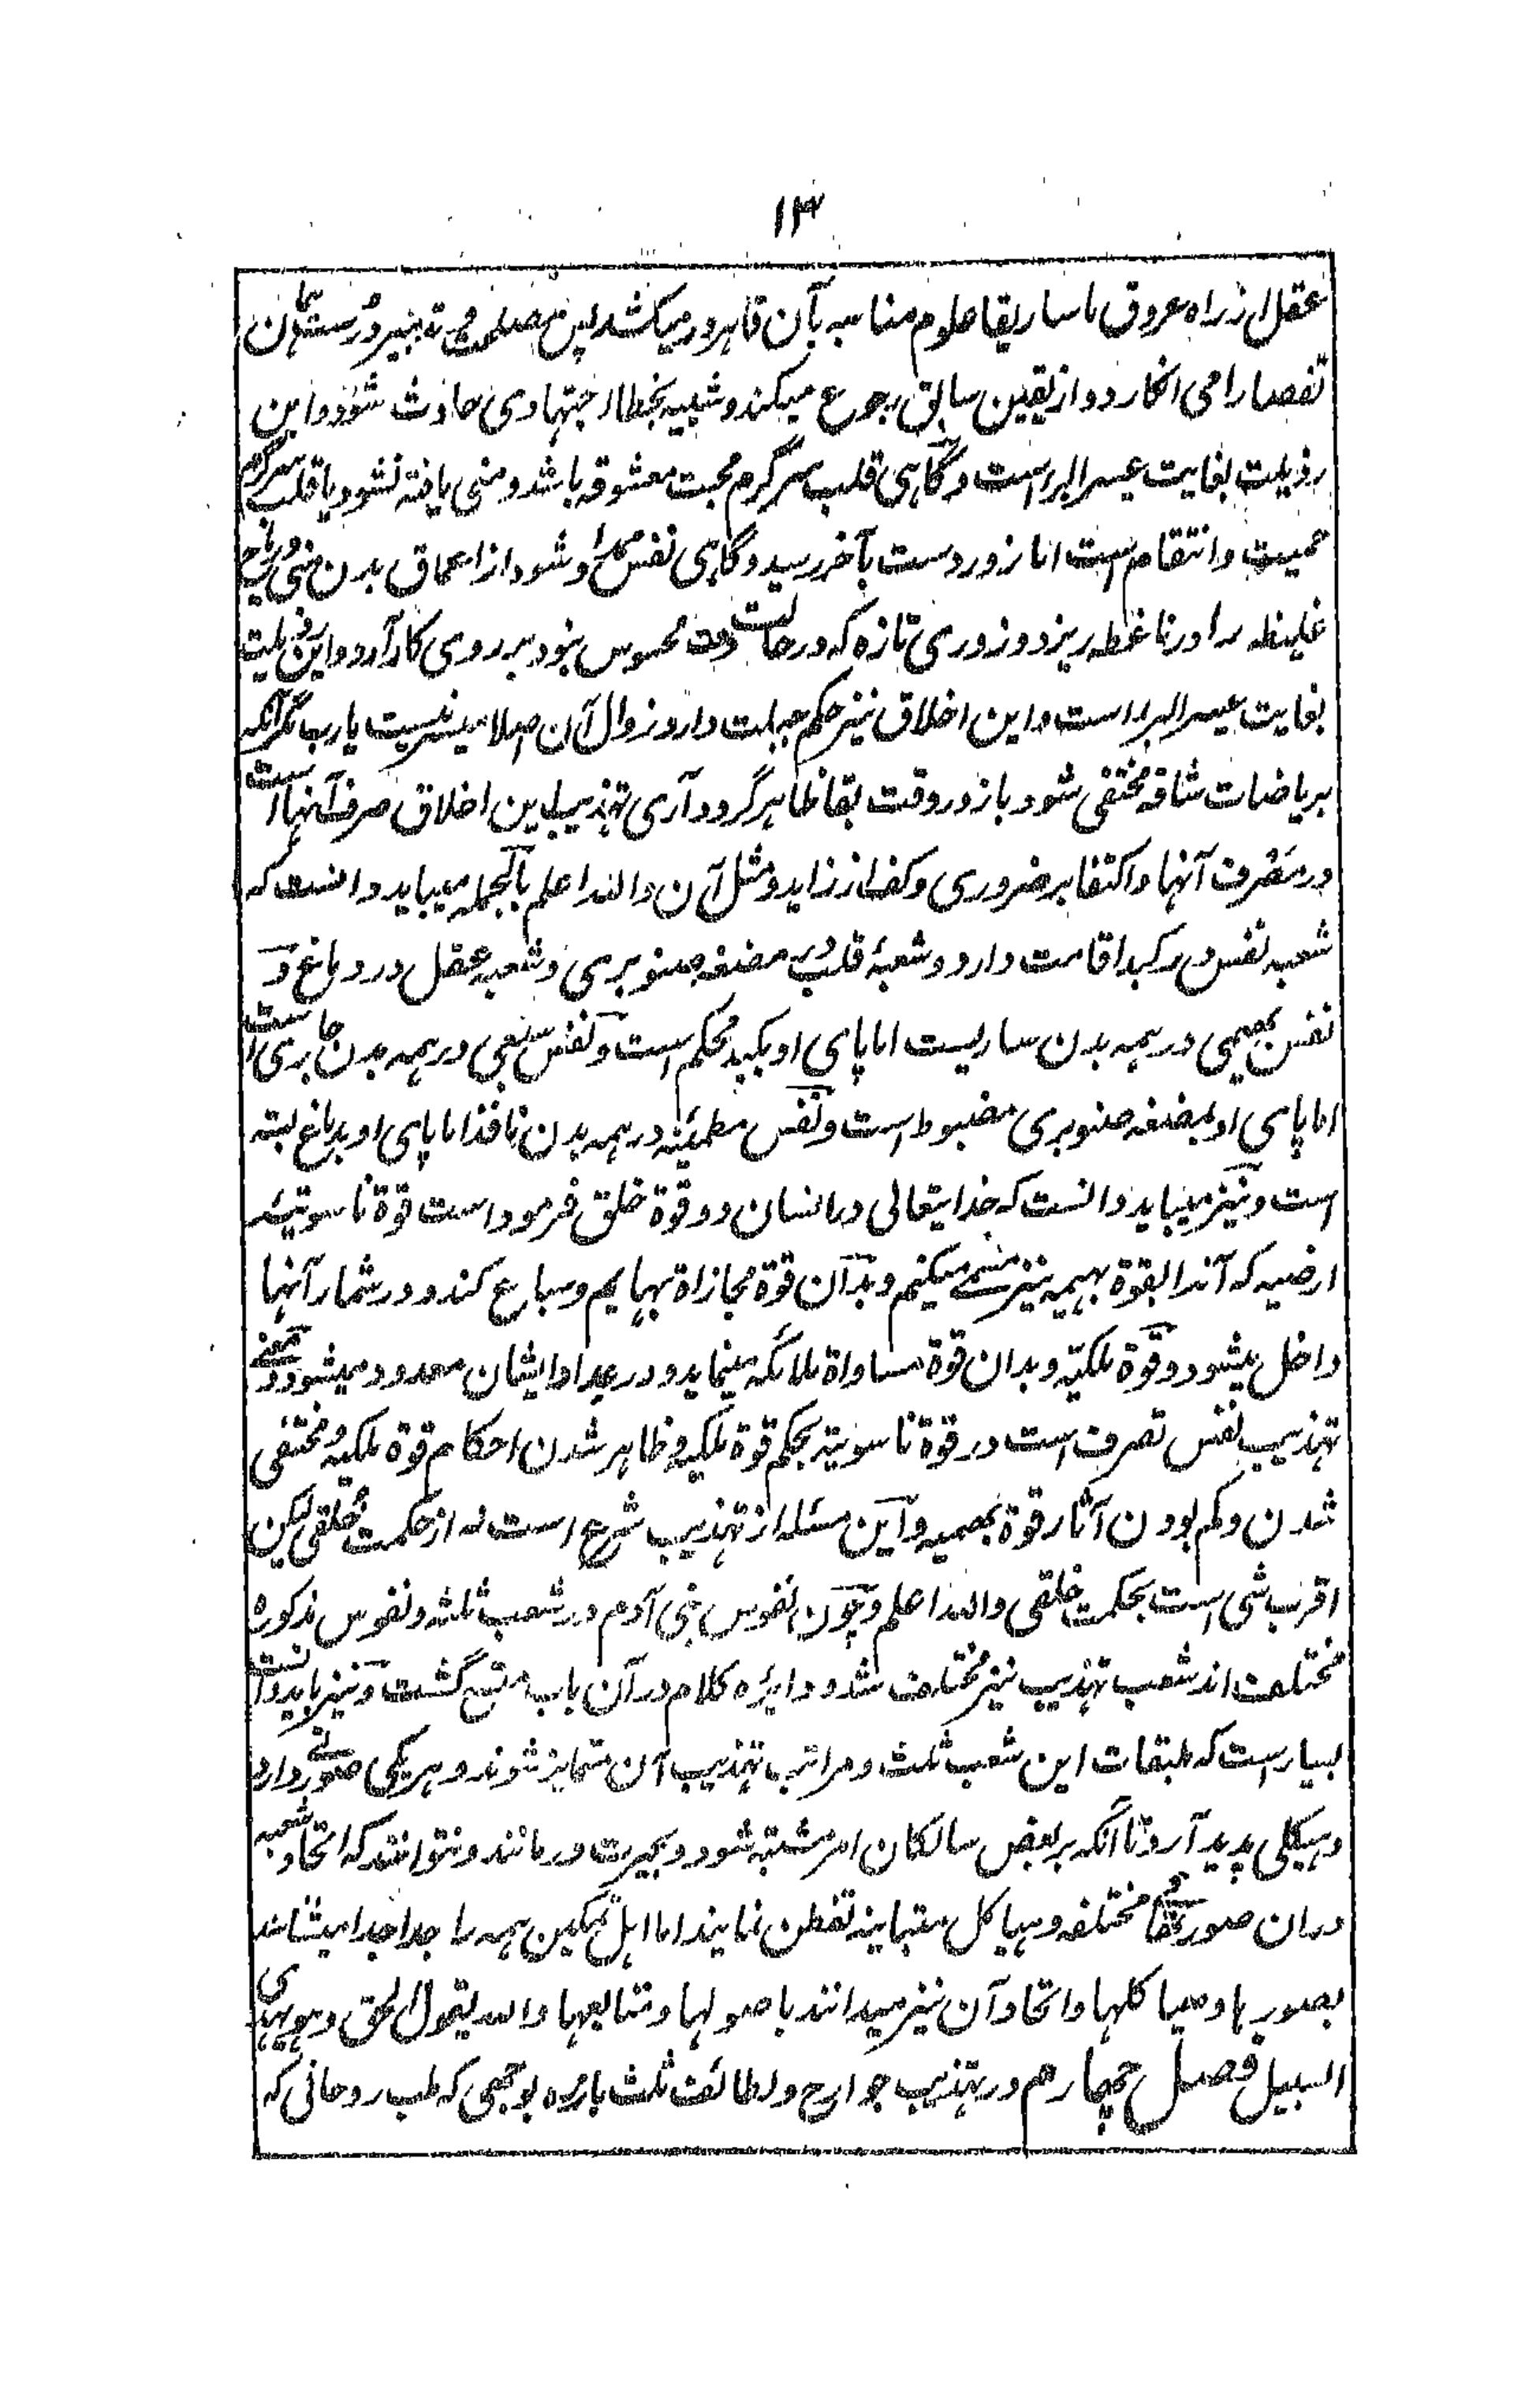 ۱۳
عقل از راه عروق ماساریقا علوم مناسبه بآن قاهر و رمیکشد پس مصلحت تدبیر درست
تفصا را می انگارد و از یقین سابق رجوع میکند و شبیه بخطا اجتهادی حادث شود و این
رذیلت بغایت عیسر البراست و گاهی قلب سرگرم محبت معشوقه باشد و منی یافته نشود یا قلب سرگرم
حمیت و انتقام است اما زور دست بآخر رسید و گاهی نفس مکار او شود از اعماق بدن منی و ریاح
غلیظه را در ناغطه ریزد و زوری تازه که در حالت محسوس نبود بر روی کار آرد و این رذیلت
بغایت عیسر البراست و این اخلاق نیز حکم جبلت دارد زوال آن اصلا میسر نیست یارب مگر آنکه
بریاضات شاقه مختفی شود باز در وقت بقا ظاهر گردد آری تهذیب این اخلاق صرف آنها است
در مصرف آنها و اکتفا بر ضروری و کف از زاید و مثل آن والله اعلم بالجمله میباید دانست که
شعبه نفس در کبد اقامت دارد و شعبهٔ قلب در مضغه صنوبری و شعبه عقل در دماغ و
نفس بهیمی در همه بدن ساریست اما پای او بکبد محکم است و نفس سبعی در همه بدن جاری است
اما پای او بمضغه صنوبری مضبوط است و نفس مطمئنه در همه بدن نافذ اما پای او بدماغ بسته
است و نیز میباید دانست که خدایتعالی در انسان دو قوة خلق فرموده است قوة ناسوتیه
ارضیه که آنرا بقوة بهیمیه نیز مسمے میکنیم و بدآن قوة مجازاة بهایم و سباع کند و در شمار آنها
داخل میشود و قوة ملکیّه و بدان قوة مساواة ملائکه مینماید و در عداد ایشان معدود میشود و معنے
تهذیب نفس تصرف است در قوة ناسوتیة بحکم قوة ملکیه و ظاهر شدن احکام قوة ملکیه و مختفی
شدن و کم بودن آثار قوة بهیمیه و این مسئله از تهذیب شرع است نه از حکمت خلقی لیکن
اقرب شی است بحکمت خلقی والله اعلم و چون نفوس بنی آدم در شعب ثلثه و نفوس مذکوره
مختلف اند شعب تهذیب نیز مختلف شد و دایره کلام در آن باب متسع گشت و نیز باید دانست
بسیار است که طبقات این شعب ثلث و مراتب تهذیب آن متمایز شوند و هر یکی صورتے دارد
و هیکلی پدید آرد تا آنکه بر بعض سالکان امر مشتبه شود و بحیرت در مانند و نتوانند که اتحاد شعبه
در ان صور مختلفه و هیاکل متباینه تفطن نمایند اما اهل تمکین همه را جدا جدا میشناسند
بصورها و هیاکلها و اتحاد آن نیز میدانند باصولها و منابعها والله یقول الحق و هو یهدی
السبیل فصل چهارم در تهذیب جوارح و لطائف ثلث بارزه بوجهی که طب روحانی که